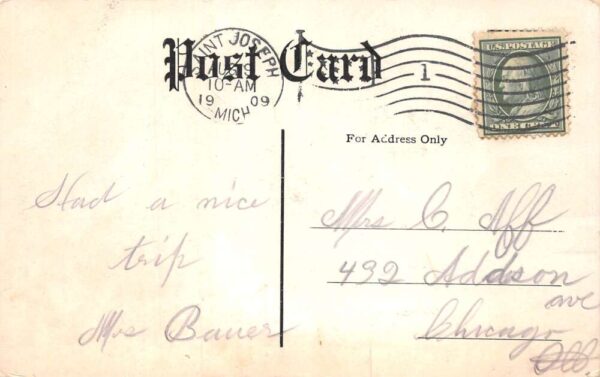 Post Card
SAINT JOSEPH
10-AM
1909
MICH
1
U.S. POSTAGE
ONE CENT
For Address Only
Had a nice
trip
Mrs Bauer
Mrs. C. Aff
492 Addson
ave
Chicago
Ill.